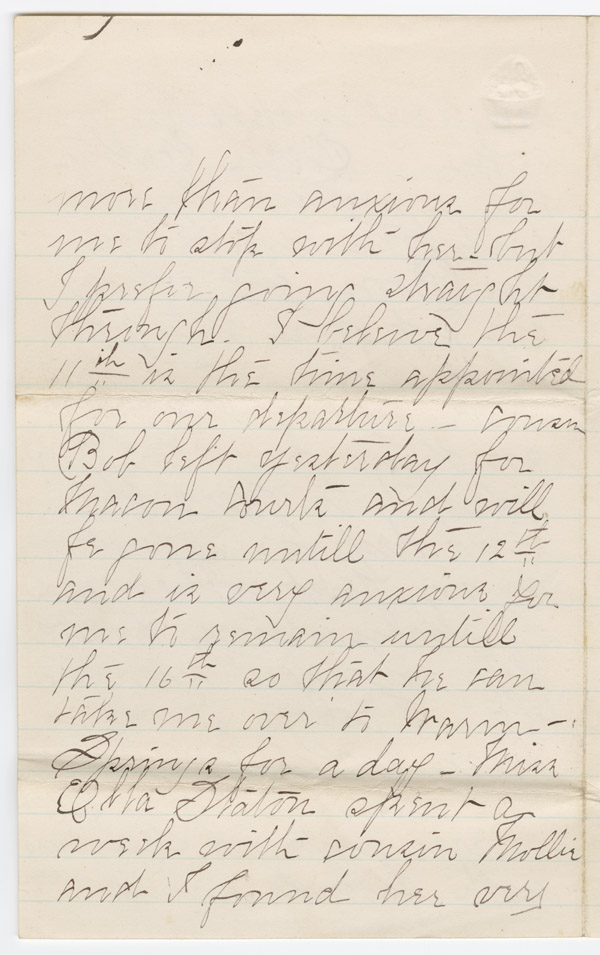 more than anxious for
me to stop with her - but
I prefer going straight
through. I believe the
11th is the time appointed
for our departure - cousin
Bob left yesterday for
Macon and will
be gone untill the 12th
and is very anxious for
me to remain untill
the 16th so that he can
take me over to Warm -
Springs for a day - Miss
Ella Slaton spent a
week with cousin Mollie
and I found her very